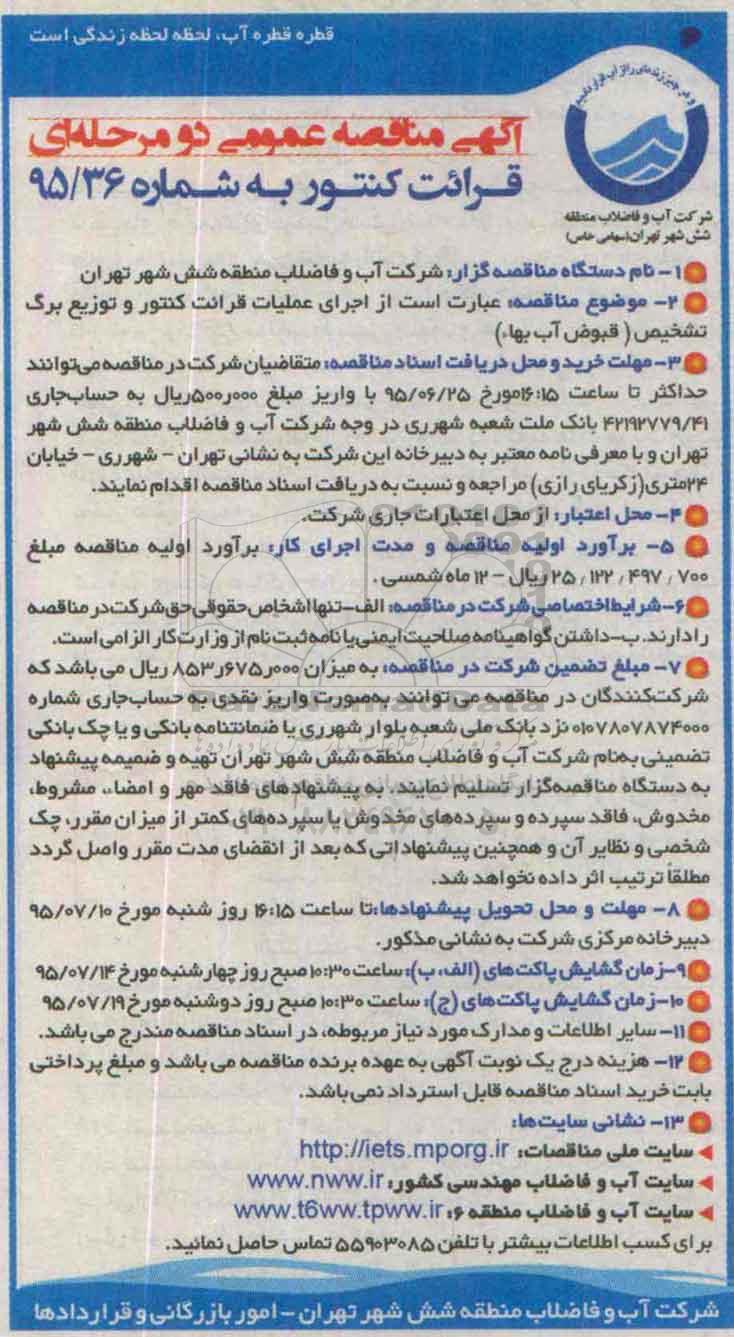 قطره قطره آب، لحظه لحظه زندگی است
آگهی مناقصه عمومی دو مرحله‌ای
قرائت کنتور به شماره ۹۵/۳۶
شرکت آب و فاضلاب منطقه
شش شهر تهران (سهامی خاص)
۱- نام دستگاه مناقصه گزار: شرکت آب و فاضلاب منطقه شش شهر تهران
۲- موضوع مناقصه: عبارت است از اجرای عملیات قرائت کنتور و توزیع برگ
تشخیص ( قبوض آب بهاء)
۳- مهلت خرید و محل دریافت اسناد مناقصه: متقاضیان شرکت در مناقصه می‌توانند
حداکثر تا ساعت ۱۶:۱۵ مورخ ۹۵/۰۶/۲۵ با واریز مبلغ ۵۰۰ر۰۰۰ ریال به حساب‌جاری
۴۲۱۹۲۷۷۹/۴۱ بانک ملت شعبه شهرری در وجه شرکت آب و فاضلاب منطقه شش شهر
تهران و با معرفی نامه معتبر به دبیرخانه این شرکت به نشانی تهران - شهرری - خیابان
۲۴متری(زکریای رازی) مراجعه و نسبت به دریافت اسناد مناقصه اقدام نمایند.
۴- محل اعتبار: از محل اعتبارات جاری شرکت.
۵- برآورد اولیه مناقصه و مدت اجرای کار: برآورد اولیه مناقصه مبلغ
۲۵٫۱۲۲٫۴۹۷٫۷۰۰ ریال - ۱۲ ماه شمسی .
۶-شرایط اختصاصی شرکت در مناقصه: الف-تنها اشخاص حقوقی حق شرکت در مناقصه
را دارند. ب-داشتن گواهینامه صلاحیت ایمنی یا نامه ثبت نام از وزارت کار الزامی است.
۷- مبلغ تضمین شرکت در مناقصه: به میزان ۸۵۳ر۶۷۵ر۰۰۰ ریال می باشد که
شرکت‌کنندگان در مناقصه می توانند به‌صورت واریز نقدی به حساب‌جاری شماره
۰۱۰۷۸۰۷۸۷۴۰۰۰ نزد بانک ملی شعبه بلوار شهرری یا ضمانتنامه بانکی و یا چک بانکی
تضمینی به‌نام شرکت آب و فاضلاب منطقه شش شهر تهران تهیه و ضمیمه پیشنهاد
به دستگاه مناقصه‌گزار تسلیم نمایند. به پیشنهادهای فاقد مهر و امضاء، مشروط،
مخدوش، فاقد سپرده و سپرده‌های مخدوش یا سپرده‌های کمتر از میزان مقرر، چک
شخصی و نظایر آن و همچنین پیشنهاداتی که بعد از انقضای مدت مقرر واصل گردد
مطلقاً ترتیب اثر داده نخواهد شد.
۸- مهلت و محل تحویل پیشنهادها:تا ساعت ۱۶:۱۵ روز شنبه مورخ ۹۵/۰۷/۱۰
دبیرخانه مرکزی شرکت به نشانی مذکور.
۹-زمان گشایش پاکت‌های (الف، ب): ساعت ۱۰:۳۰ صبح روز چهارشنبه مورخ ۹۵/۰۷/۱۴
۱۰-زمان گشایش پاکت‌های (ج): ساعت ۱۰:۳۰ صبح روز دوشنبه مورخ ۹۵/۰۷/۱۹
۱۱- سایر اطلاعات و مدارک مورد نیاز مربوطه، در اسناد مناقصه مندرج می باشد.
۱۲- هزینه درج یک نوبت آگهی به عهده برنده مناقصه می باشد و مبلغ پرداختی
بابت خرید اسناد مناقصه قابل استرداد نمی‌باشد.
۱۳- نشانی سایت‌ها:
سایت ملی مناقصات: http://iets.mporg.ir
سایت آب و فاضلاب مهندسی کشور: www.nww.ir
سایت آب و فاضلاب منطقه ۶: www.t6ww.tpww.ir
برای کسب اطلاعات بیشتر با تلفن ۵۵۹۰۳۰۸۵ تماس حاصل نمائید.
شرکت آب و فاضلاب منطقه شش شهر تهران - امور بازرگانی و قراردادها